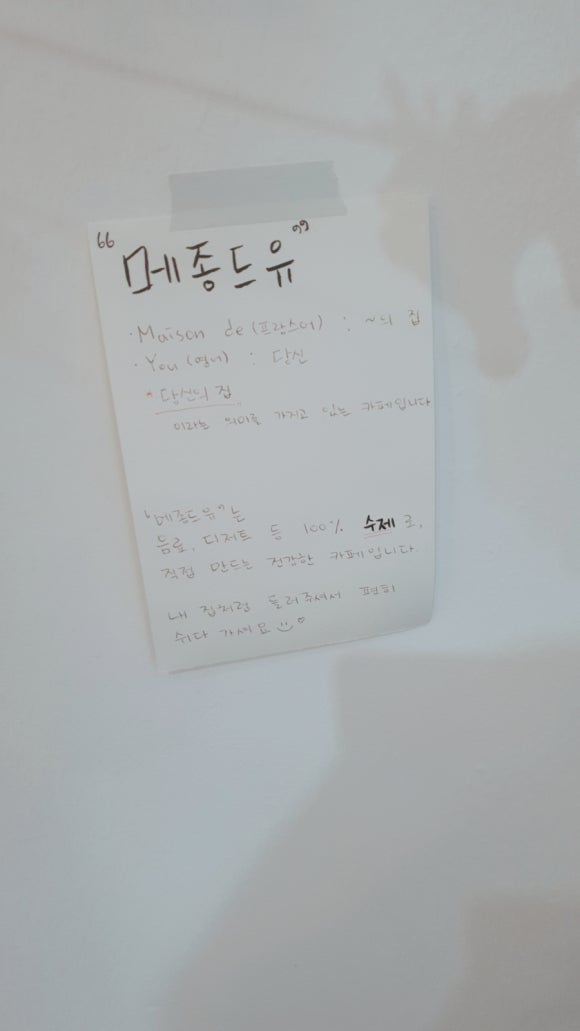 “메종드유”
· Maison de (프랑스어) : ~의 집
· You (영어) : 당신
* 당신의 집
이라는 의미를 가지고 있는 카페입니다
“메종드유”는
음료, 디저트 등 100% 수제로,
직접 만드는 정감한 카페입니다.
내 집처럼 들러주셔서 편히
쉬다 가세요